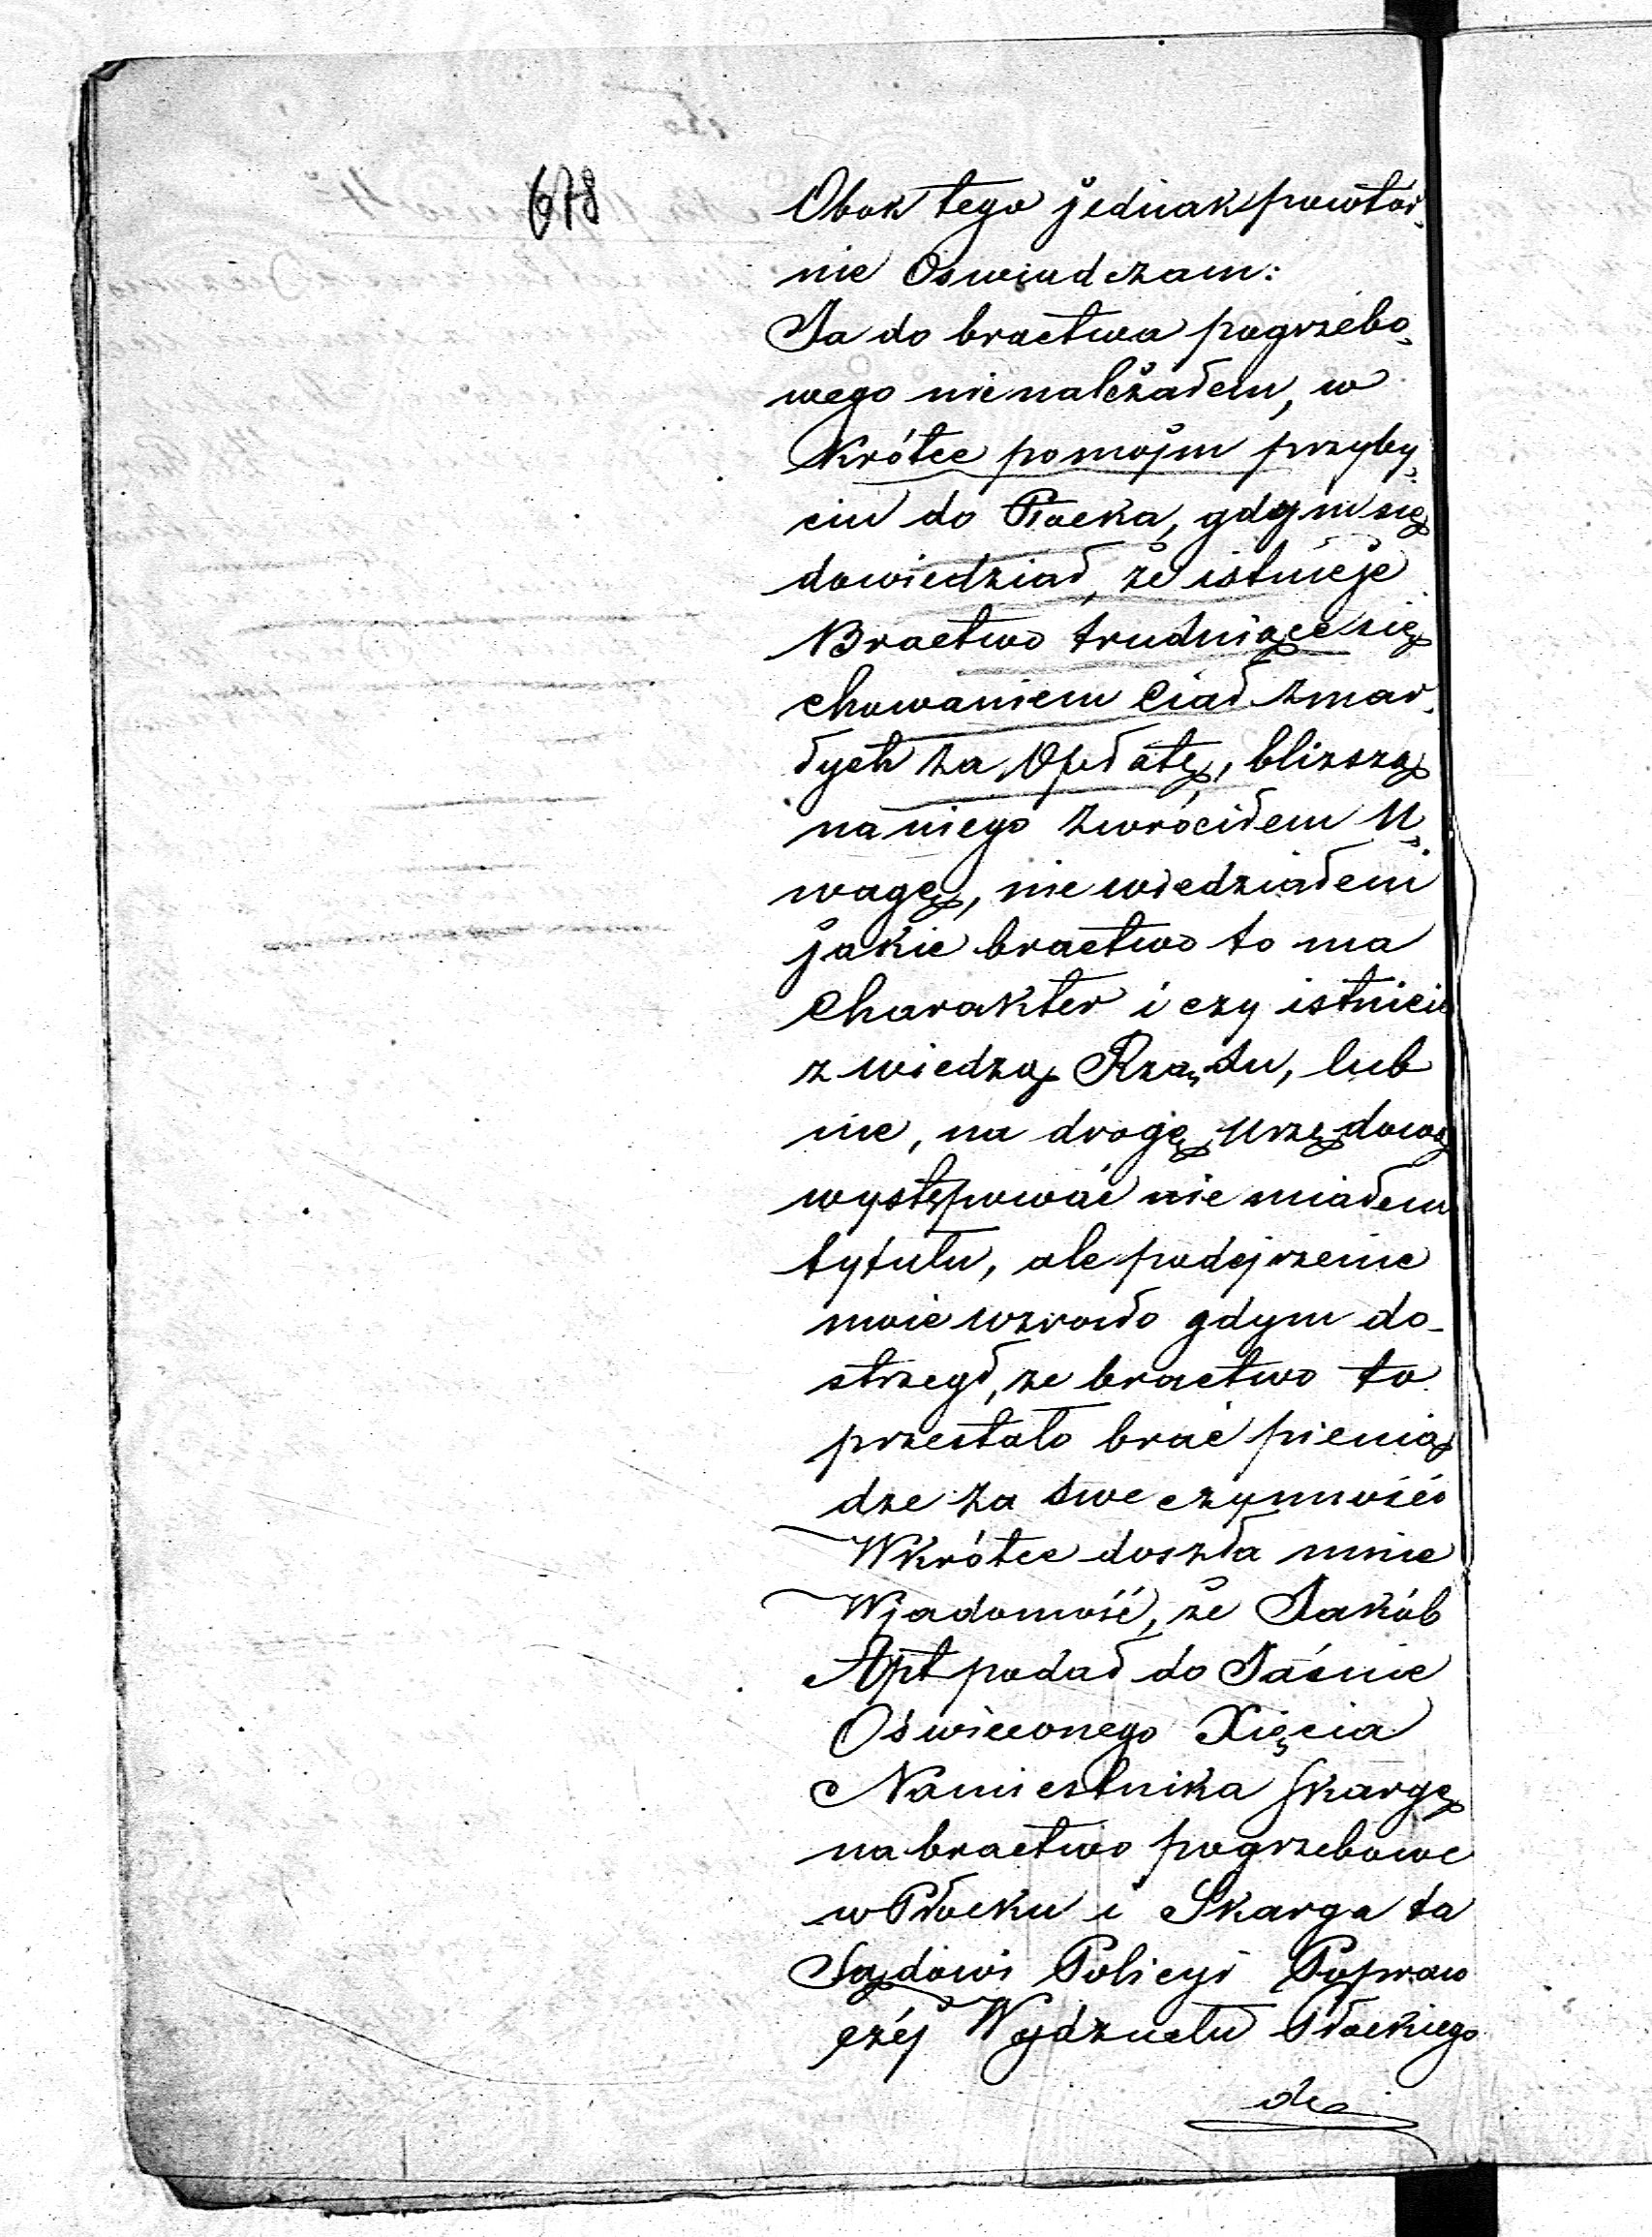 678
Obok tego jednak powtór„
nie Oswiadczam:
Ja do bractwa pogrzebo„
wego nienależałem, w
Krótce pomojm przyby„
ciu do Płocka, gdym się
dowiedział, że istnieje
Bractwo trudniące się
chowaniem Ciał zmar„
łych za Opłatę, blizszą
naniego zwróciłem U„
wagę, nie wiedziałem
jakie bractwo to ma
Charakter i czy istnieie
z wiedzą Rządu, lub
nie, na drogę urzędową
występować nie miałem
tytulu, ale podejrzenie
moie wzrosło gdym do-
strzegł, ze bractwo to
przestało brać pienią
dze za swe czynności
Wkrótce doszła mnie
Wjadomość, że Jakób
Apt podał do Jaśnie
Oświeconego Xięcia
Namiestnika skargę
na bractwo pogrzebowe
w Płocku i Skarga ta
Sądowi Policyi Popraw
czéj Wydziału Płockiego